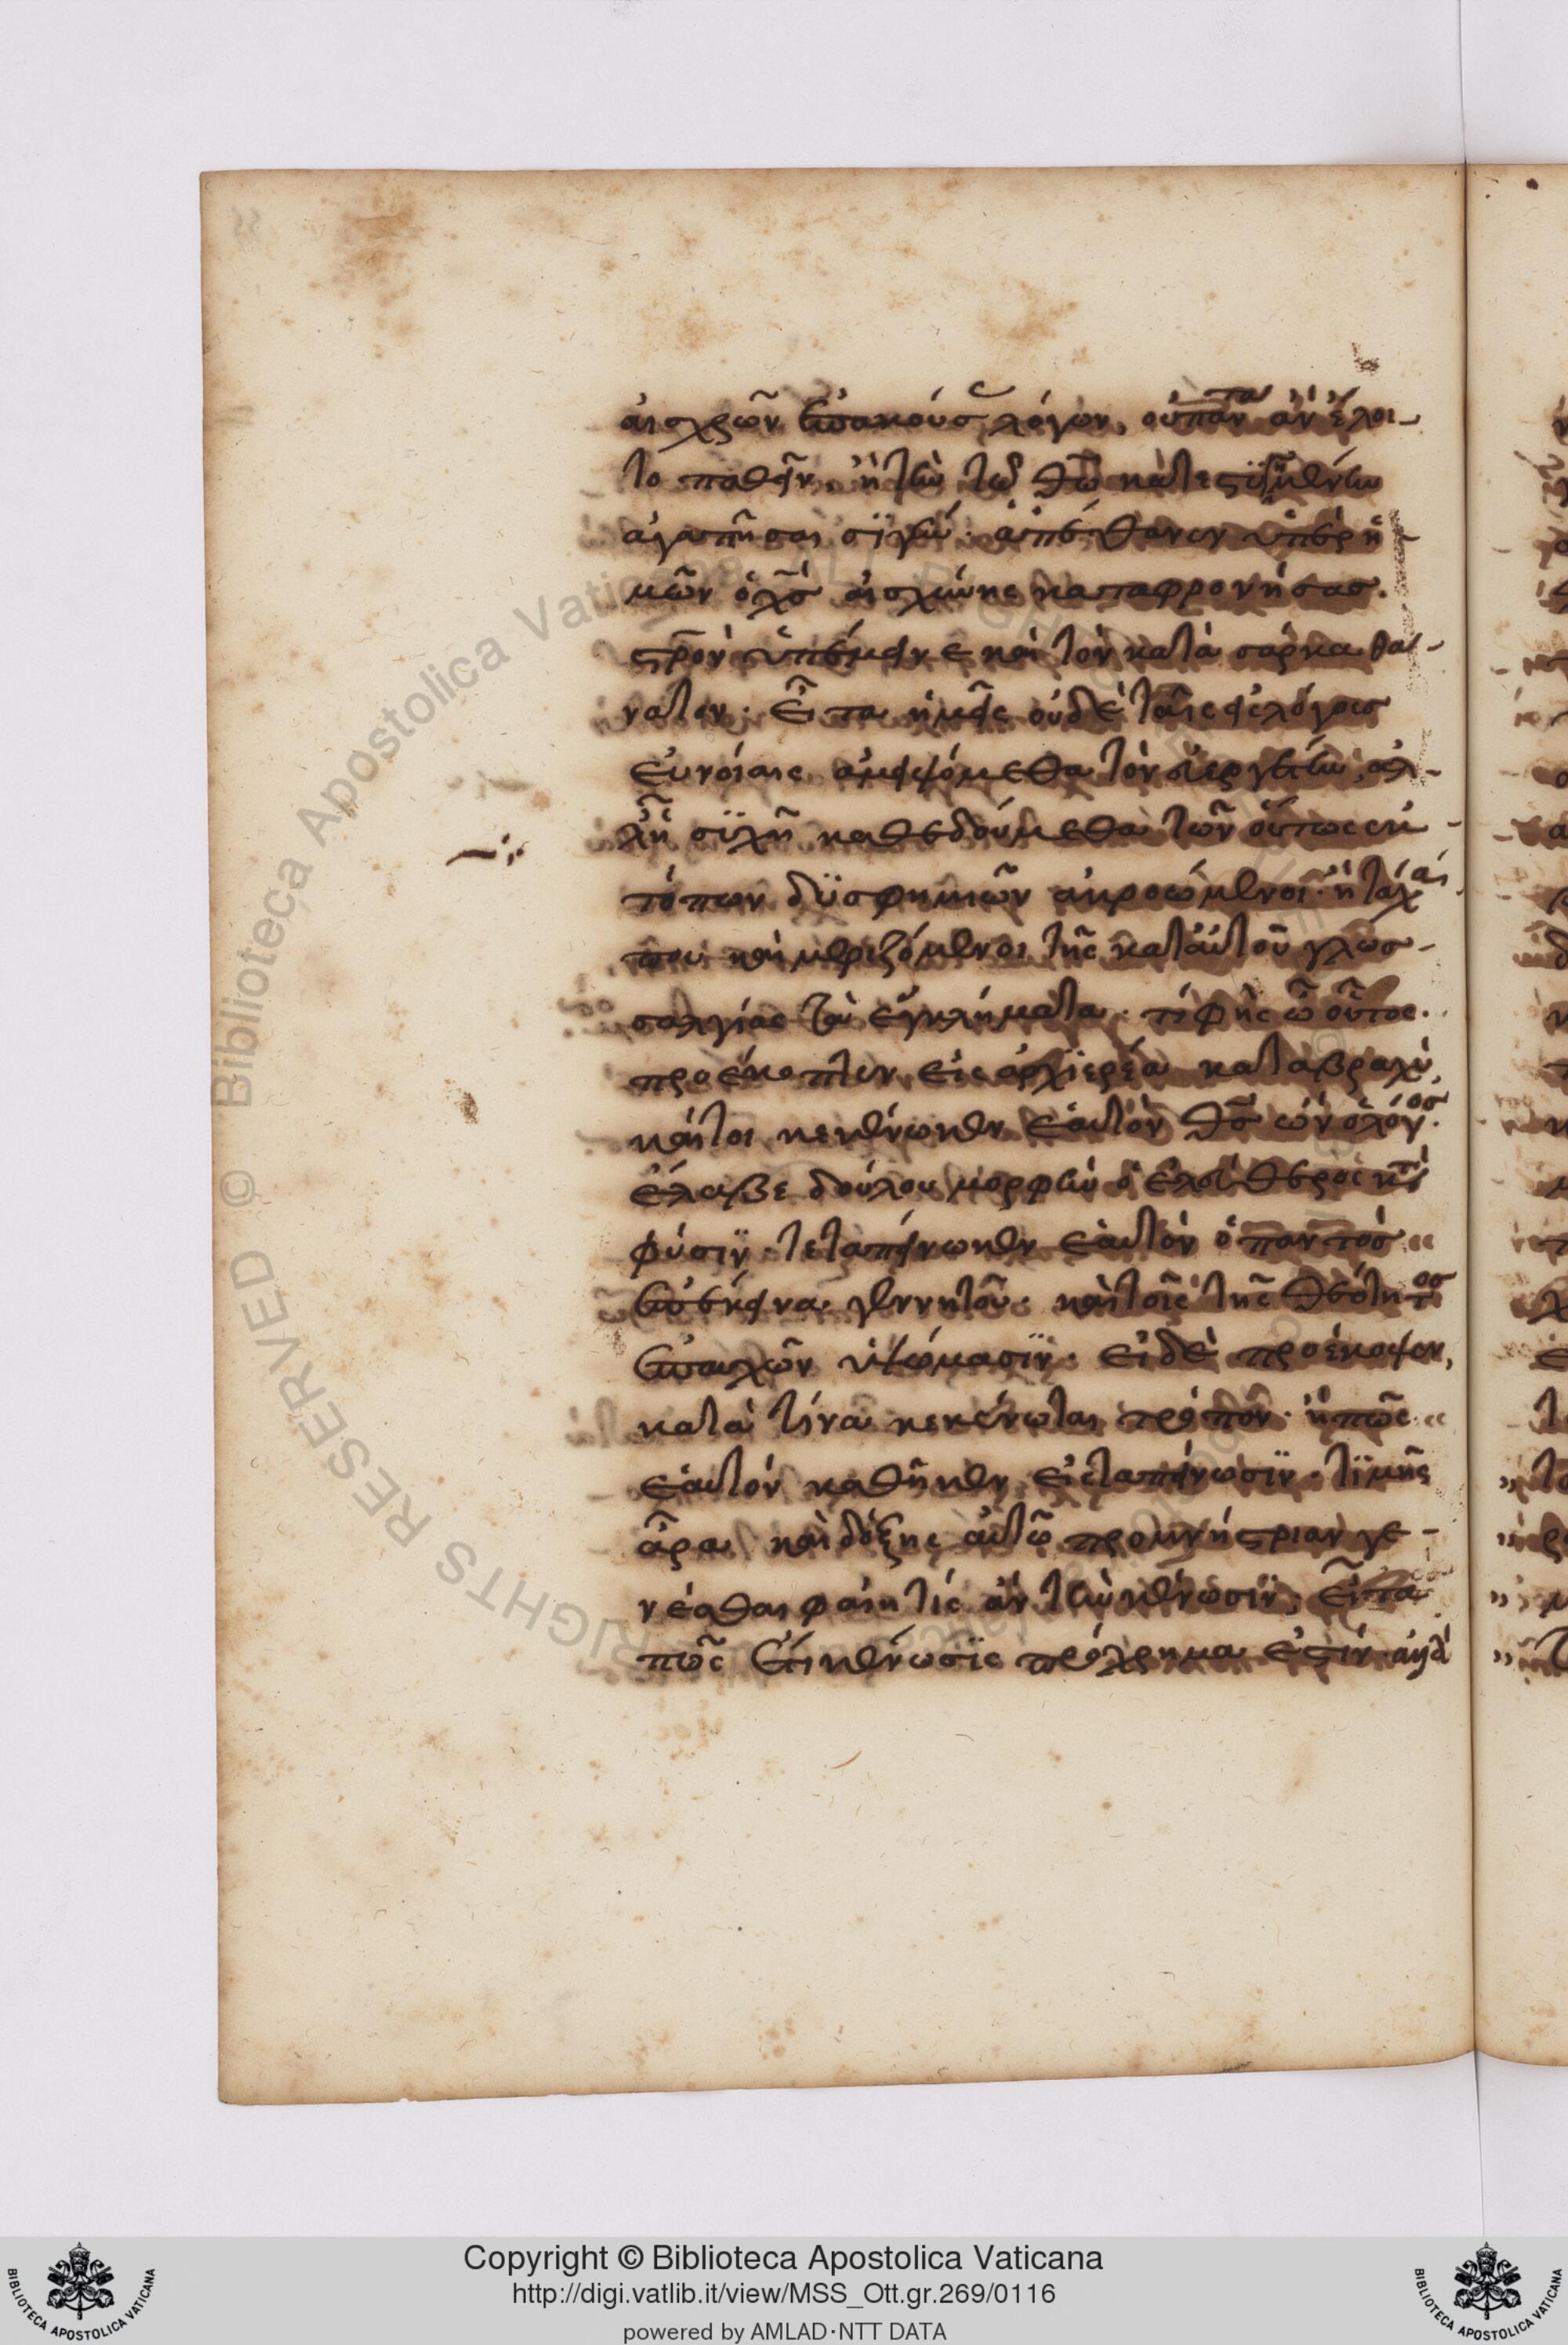 αἰσχρῶν ἐπακούσ λόγων, οὐπάντα ἀν ἕλοι-
το παθεῖν, ἢ τὴν τῶ θῶ κατεστυγημένην
ἀγαπῆσαι σϊγήν· ἀπέθανεν ὑπὲρ ἡ-
μῶν ὁ χσ αἰσχύνης καταφρονήσας.
στρὸν ὑπέμεινε καὶ τὸν κατὰ σάρκα θά-
νατον. εἶτα ἡμεῖς οὐδὲ ταῖς ψιλόγοις
εὐνοίαις ἀμειψόμεθα τὸν εὐεργέτην, ἀλ-
λῆ σϊγῆ καθεδούμεθα τῶν οὕτως ἐκ-
τόπων δϋσφημιῶν ἀκροώμενοι· ἢ τάχαι
που καὶ μεριζόμενοι τῆς κατ' αὐτοῦ γλωσ-
σαλγίας τὰ ἐγκλήματα. τί φὴς ὦ οὗτος.
προέκοπτεν εἰς ἀρχϊερέα κατὰ βραχὺ
καίτοι κεκένωκεν ἑαυτὸν θσ ὢν ὁ λόγος.
ἔλαβε δούλου μορφὴν ὁ ἐλεύθερος κτ
φύσιν. τεταπείνωκεν ἑαυτὸν ὁ παντὸσ
ἐπέκεινα γεννητοῦ. καὶ τοῖς τῆς θεότητος
ἐπαυχῶν ὑψώμασϊν. εἰ δὲ προέκοψεν,
κατὰ τίνα κεκένωται τρόπον. ἢ πῶς
ἑαυτὸν καθῆκεν εἰς ταπείνωσϊν. τϊμῆς
ἆρα καὶ δόξης αὐτῶ προμνήστριαν γε-
νέσθαι φαίη τίς ἂν τὴν κένωσϊν; εἶτα
πῶς ἔτι κένωσϊς τὸ χρῆμα ἐστὶν· ἀλλ'
Copyright © Biblioteca Apostolica Vaticana
http://digi.vatlib.it/view/MSS_Ott.gr.269/0116
powered by AMLAD·NTT DATA